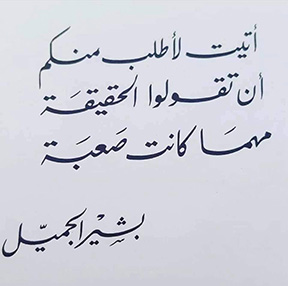 أتيت لأطلب منكم
أن تقولوا الحقيقة
مهما كانت صَعبَة
بشير الجميّل